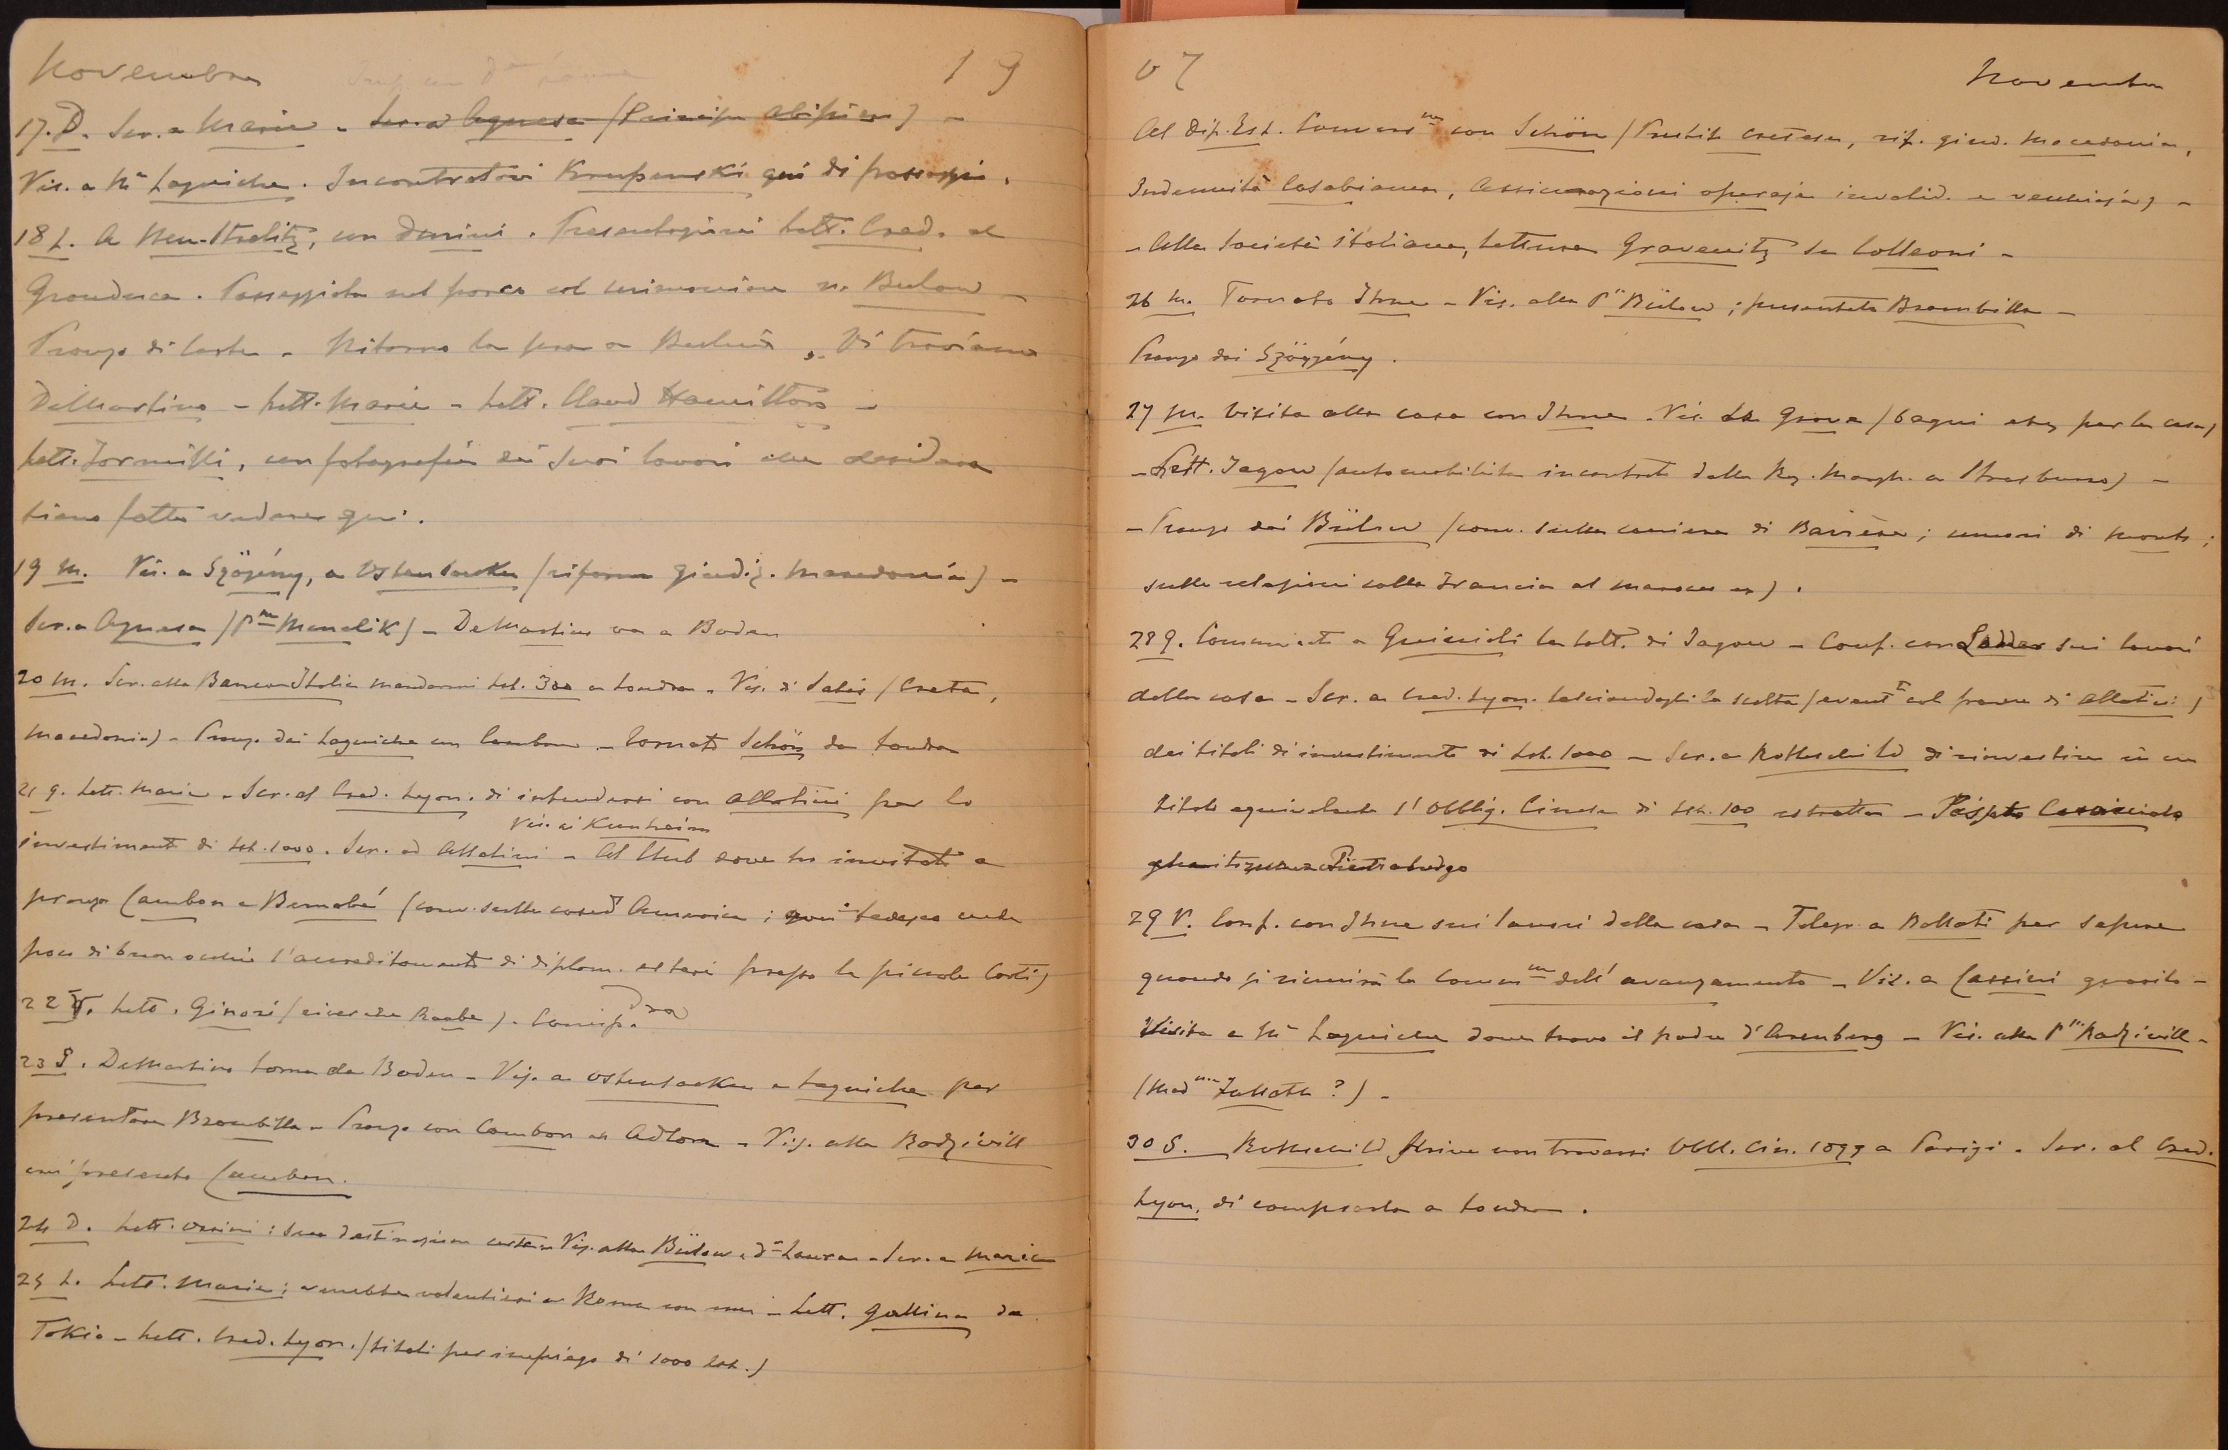 Novembre
19
17. D. Scr. a Marie - Scr. a Agnese (Principe Abissin.) -
Vis. a Mᵃ Laguiche. Incontratovi Krupenski qui di passaggio.
18 L. A Neu-Strelitz, con Durini. Presentazioni Lett. Cred. al
Granduca. Passeggiata nel parco col cerimoniere v. Bulow -
Pranzo di Corte - Ritorno la sera a Berlino. Vi troviamo
DeMartino - Lett. Marie - Lett. Claud Hamilton -
Lett. Formilli, con fotografie dei suoi lavori che desidera
siano fatte vedere qui.
19 M. Vis. a Szögény, a Ostensacken (riforma giudiz. Macedonia) -
Scr. a Agnese (Pᵐ Menelik) - DeMartino va a Baden
20 M. Scr. alla Banca Italia mandarmi Lst. 300 a Londra. Vis. di Salis (Creta,
Macedonia) - Pranzo dai Laguiche con Cambon - Tornato Schön da Londra
21 G. Lett. Marie - Scr. al Cred. Lyon. di intendersi con Allatini per lo
Vis. ai Kunheim
investimento di Lst. 1000. Scr. ad Allatini - Al Club dove ho invitato a
pranzo Cambon e Bernabé (conv. sulle cose d'America; govᵒ tedesco vede
poco di buon occhio l'accreditamento di diplom. esteri presso le piccole Corti)
22 V. Lett. Ginori (ricevere Raabe). Corrisp. Dra
23 S. DeMartino torna da Baden - Vis. a Ostensacken e Laguiche per
presentare Brambilla - Pranzo con Cambon all'Adlon - Vis. alla Radziwill
cui presento Cambon.
24 D. Lett. Orsini: sua destinazione certa - Vis. alla Bülow e Dᵃ Laura - Scr. a Marie
25 L. Lett. Marie; verrebbe volentieri a Roma con me - Lett. Gallina da
Tokio - Lett. Cred. Lyon. (titoli per impiego di 1000 Lst.)
07
Novembre
Al Dip. Est. Conversⁿᵉ con Schön (Prestito cretese, rif. giud. Macedonia,
Indennità Casabianca, Assicurazioni operaje invalid. e vecchiaja) -
- Alla Società italiana, lettura Gravenitz su Colleoni -
26 M. Tornato Ihne - Vis. alla Pˢˢ Bülow; presentato Brambilla -
Pranzo dai Szögyény.
27 M. Visita alla casa con Ihne. Vis. Grove (bagni etc. per la casa)
- Lett. Jagow (automobilista incontrato dalla Reg. Margh. a Strasburgo) -
- Pranzo dai Bülow (conv. sulla carriera di Barrère; umori di Monts;
sulle relazioni colla Francia al Marocco ec).
28 G. Comunicato a Guiccioli la lett. di Jagow - Conf. con sui lavori
della casa - Scr. a Cred. Lyon. lasciandogli la scelta (eventᵉ col parere di Allatini)
dei titoli di investimento di Lst. 1000 - Scr. a Rothschild di rinvestire in un
titolo equivalente l'Obblig. Cinese di Lst. 100 estratta -
29 V. Conf. con Ihne sui lavori della casa - Telegr. a Bollati per sapere
quando si riunirà la Commⁿᵉ dell'avanzamento - Vis. a Cassini guarito -
Visita a Mᵃ Laguiche dove trovo il padre d'Arenberg - Vis. alla Pˢˢ Radziwill -
30 S. Rothschild scrive non trovarsi Obbl. Cin. a Parigi. Scr. al Cred.
Lyon. di comprarla a Londra.